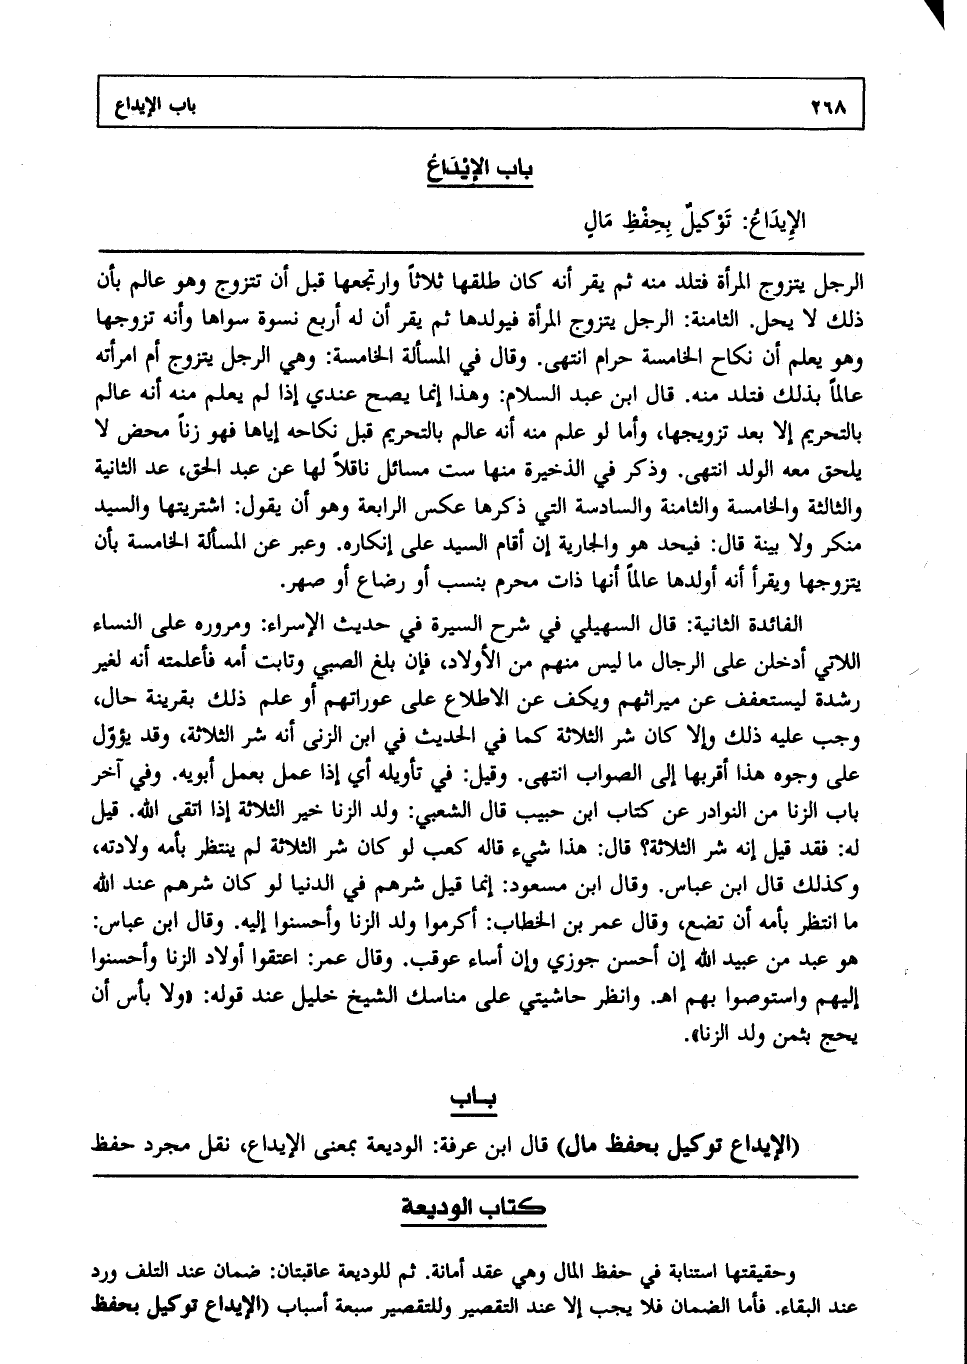 ٢٦٨ باب الإيداع
باب الإيْدَاعُ
الإِيدَاعُ: تَوْكيلٌ بِحِفْظِ مَالٍ
الرجل يتزوج المرأة فتلد منه ثم يقر أنه كان طلقها ثلاثاً وارتجعها قبل أن تتزوج وهو عالم بأن
ذلك لا يحل. الثامنة: الرجل يتزوج المرأة فيولدها ثم يقر أن له أربع نسوة سواها وأنه تزوجها
وهو يعلم أن نكاح الخامسة حرام انتهى. وقال في المسألة الخامسة: وهي الرجل يتزوج أم امرأته
عالماً بذلك فتلد منه. قال ابن عبد السلام: وهذا إنما يصح عندي إذا لم يعلم منه أنه عالم
بالتحريم إلا بعد تزويجها، وأما لو علم منه أنه عالم بالتحريم قبل نكاحه إياها فهو زناً محض لا
يلحق معه الولد انتهى. وذكر في الذخيرة منها ست مسائل ناقلاً لها عن عبد الحق، عد الثانية
والثالثة والخامسة والثامنة والسادسة التي ذكرها عكس الرابعة وهو أن يقول: اشتريتها والسيد
منكر ولا بينة قال: فيحد هو والجارية إن أقام السيد على إنكاره. وعبر عن المسألة الخامسة بأن
يتزوجها ويقرأ أنه أولدها عالماً أنها ذات محرم بنسب أو رضاع أو صهر.
الفائدة الثانية: قال السهيلي في شرح السيرة في حديث الإسراء: ومروره على النساء
اللاتي أدخلن على الرجال ما ليس منهم من الأولاد، فإن بلغ الصبي وتابت أمه فأعلمته أنه لغير
رشدة ليستعفف عن ميراثهم ويكف عن الاطلاع على عوراتهم أو علم ذلك بقرينة حال،
وجب عليه ذلك وإلا كان شر الثلاثة كما في الحديث في ابن الزنى أنه شر الثلاثة، وقد يؤوّل
على وجوه هذا أقربها إلى الصواب انتهى. وقيل: في تأويله أي إذا عمل بعمل أبويه. وفي آخر
باب الزنا من النوادر عن كتاب ابن حبيب قال الشعبي: ولد الزنا خير الثلاثة إذا اتقى الله. قيل
له: فقد قيل إنه شر الثلاثة؟ قال: هذا شيء قاله كعب لو كان شر الثلاثة لم ينتظر بأمه ولادته،
وكذلك قال ابن عباس. وقال ابن مسعود: إنما قيل شرهم في الدنيا لو كان شرهم عند الله
ما انتظر بأمه أن تضع، وقال عمر بن الخطاب: أكرموا ولد الزنا وأحسنوا إليه. وقال ابن عباس:
هو عبد من عبيد الله إن أحسن جوزي وإن أساء عوقب. وقال عمر: اعتقوا أولاد الزنا وأحسنوا
إليهم واستوصوا بهم اهـ. وانظر حاشيتي على مناسك الشيخ خليل عند قوله: «ولا بأس أن
يحج بثمن ولد الزنا».
باب
(الإيداع توكيل بحفظ مال) قال ابن عرفة: الوديعة بمعنى الإيداع، نقل مجرد حفظ
كتاب الوديعة
وحقيقتها استنابة في حفظ المال وهي عقد أمانة. ثم للوديعة عاقبتان: ضمان عند التلف ورد
عند البقاء. فأما الضمان فلا يجب إلا عند التقصير وللتقصير سبعة أسباب (الإيداع توكيل بحفظ